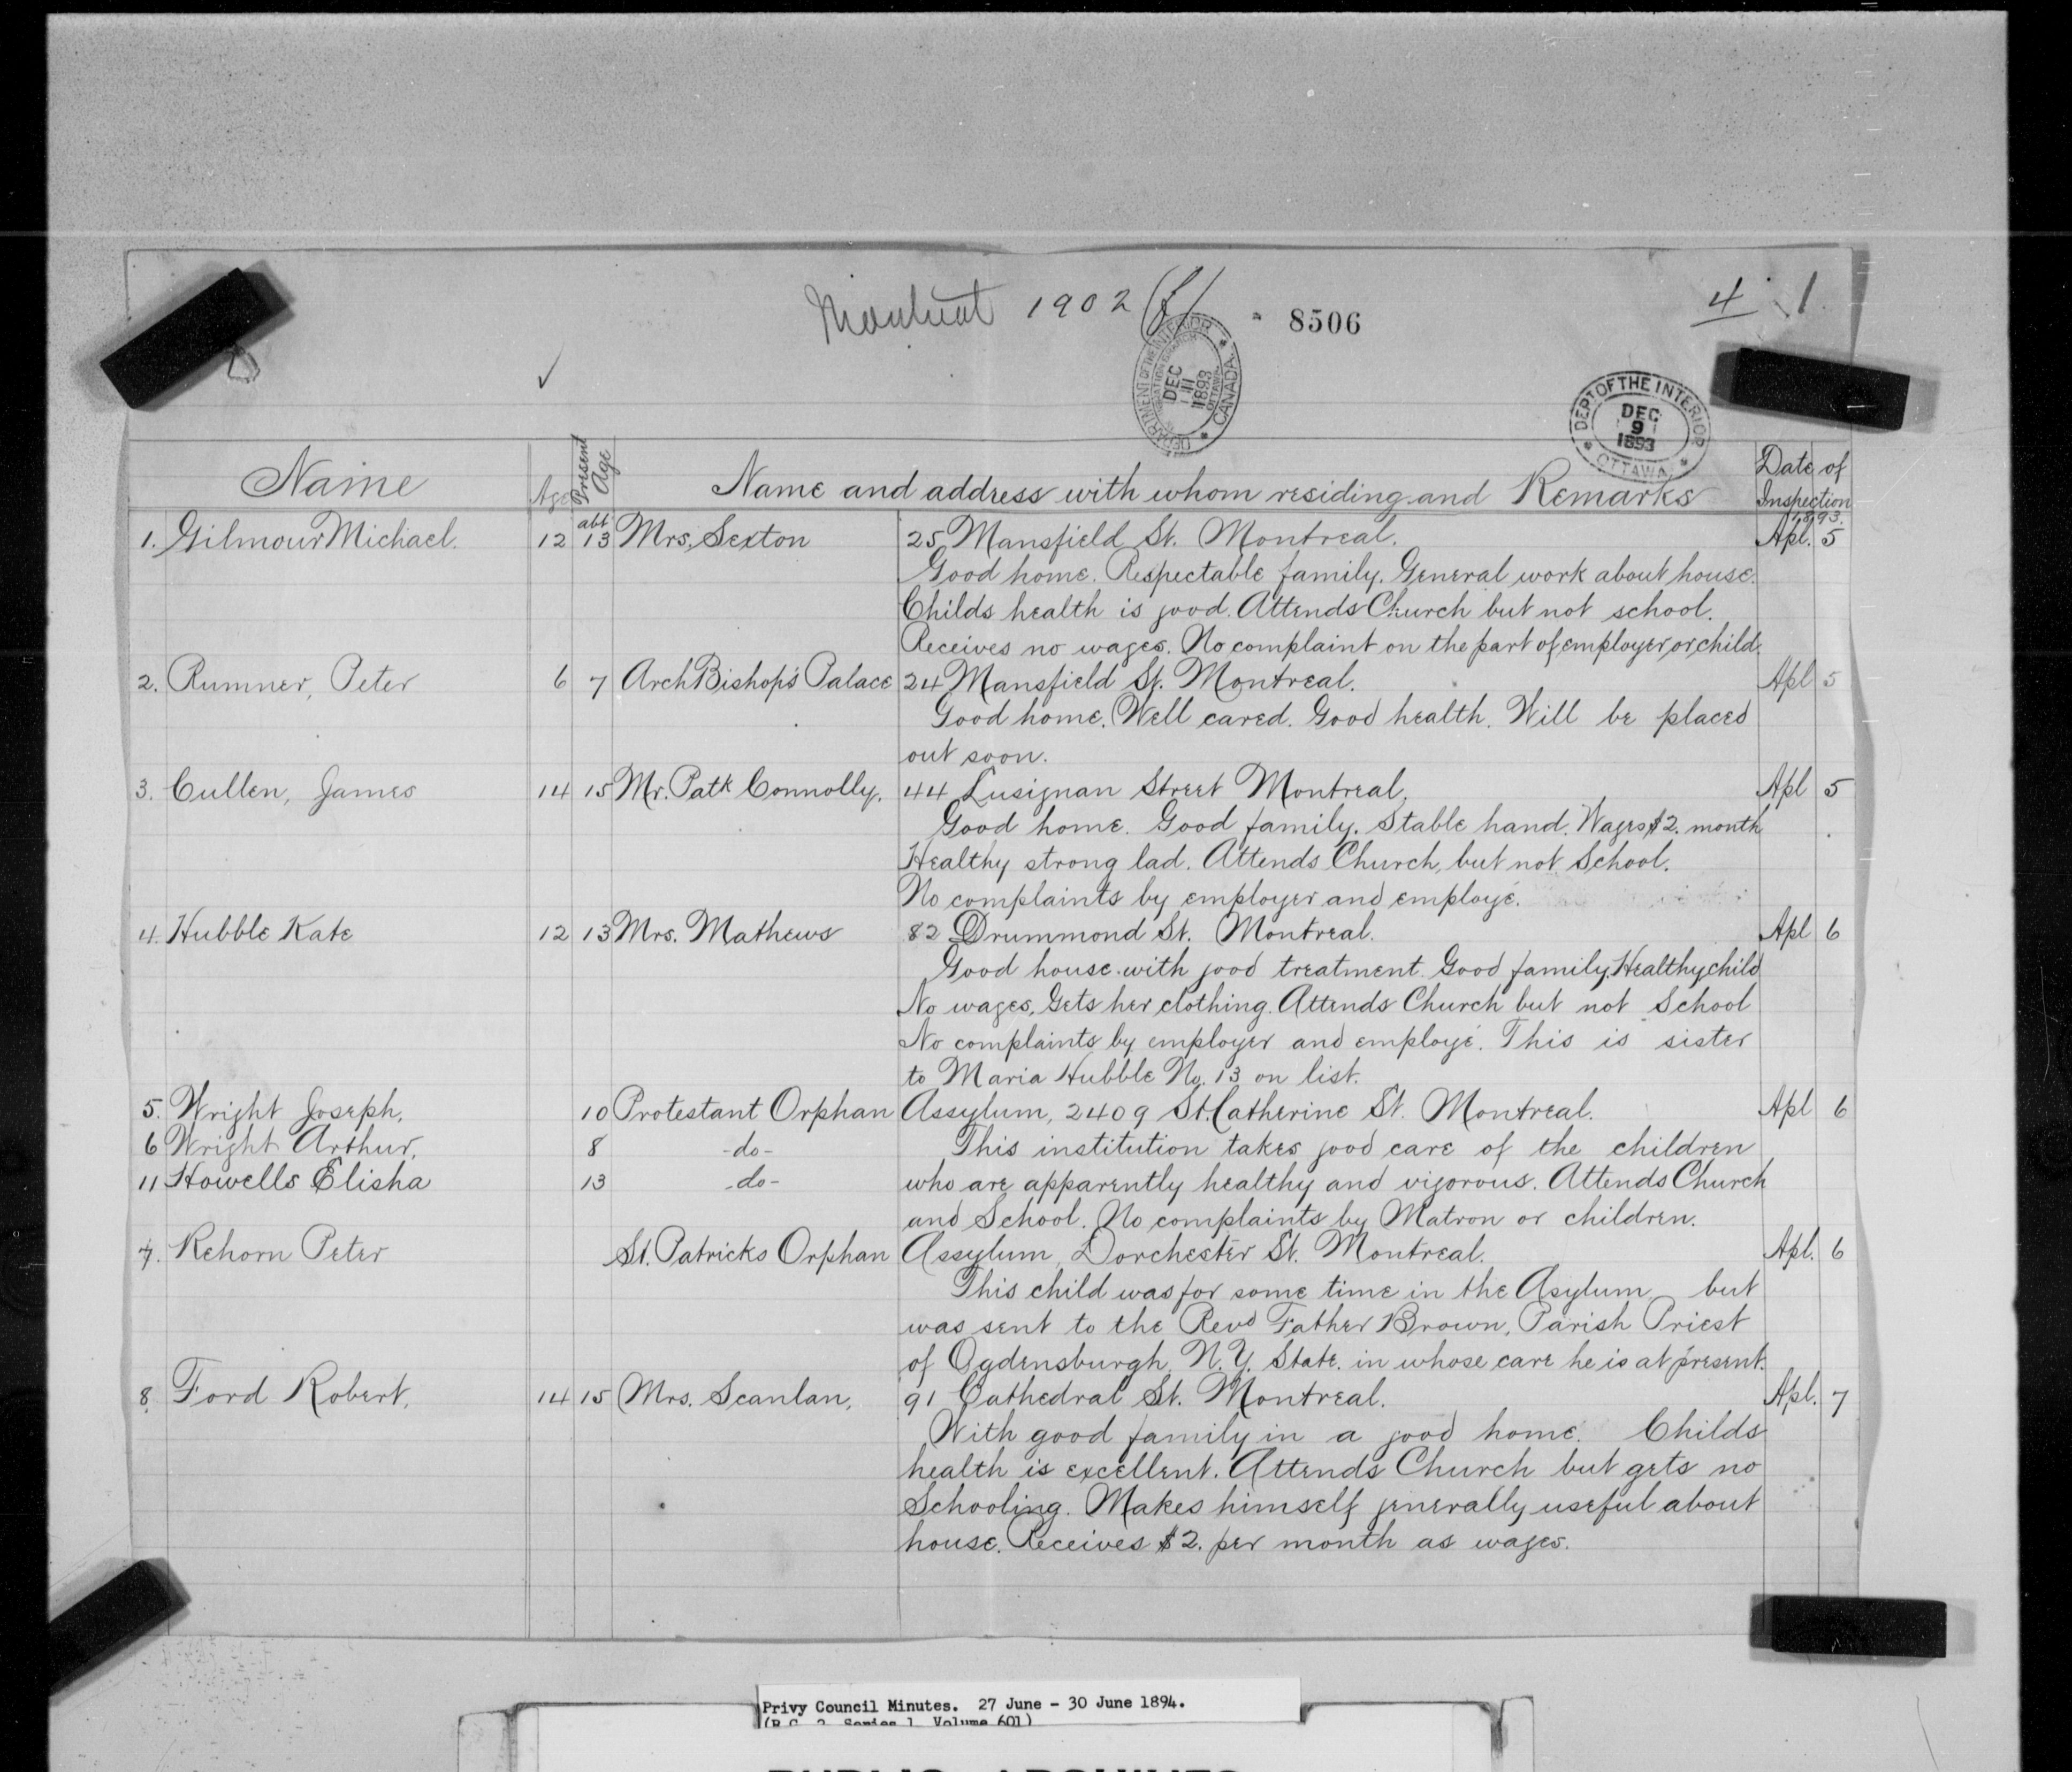 Montreal 1902 (f) 8506 4 1
DEPARTMENT OF THE INTERIOR CANADA DEC 11 1893 OTTAWA
DEPT OF THE INTERIOR DEC 9 1893 OTTAWA
Name Age Present Age Name and address with whom residing and Remarks Date of Inspection
1893.
1. Gilmour Michael. 12 abt 13 Mrs. Sexton 25 Mansfield St. Montreal. Apl. 5
Good home. Respectable family. General work about house.
Childs health is good. Attends Church but not school.
Receives no wages. No complaint on the part of employer or child.
2. Rumner, Peter 6 7 ArchBishop's Palace 24 Mansfield St. Montreal. Apl 5
Good home. Well cared. Good health. Will be placed
out soon.
3. Cullen, James 14 15 Mr. Patk Connolly. 44 Lusignan Street Montreal. Apl 5
Good home. Good family. Stable hand. Wages $2. month
Healthy strong lad. Attends Church, but not School.
No complaints by employer and employé.
4. Hubble Kate 12 13 Mrs. Mathews 82 Drummond St. Montreal. Apl 6
Good house with good treatment. Good family. Healthy child
No wages, Gets her clothing. Attends Church but not School
No complaints by employer and employé. This is sister
to Maria Hubble No. 13 on list.
5. Wright Joseph, 10 Protestant Orphan Assylum, 2409 St. Catherine St. Montreal. Apl 6
6 Wright Arthur, 8 -do- This institution takes good care of the children
11 Howells Elisha 13 -do- who are apparently healthy and vigorous. Attends Church
and School. No complaints by Matron or children.
7. Rehorn Peter St. Patricks Orphan Assylum, Dorchester St. Montreal. Apl. 6
This child was for some time in the Asylum but
was sent to the Revd Father Brown, Parish Priest
of Ogdensburgh, N.Y. State. in whose care he is at present.
8. Ford Robert, 14 15 Mrs. Scanlan, 91 Cathedral St. Montreal. Apl. 7
With good family in a good home. Childs
health is excellent. Attends Church but gets no
Schooling. Makes himself generally useful about
house. Receives $2. per month as wages.
Privy Council Minutes. 27 June - 30 June 1894.
(R.G. 2, Series 1, Volume 601)
PUBLIC ARCHIVES